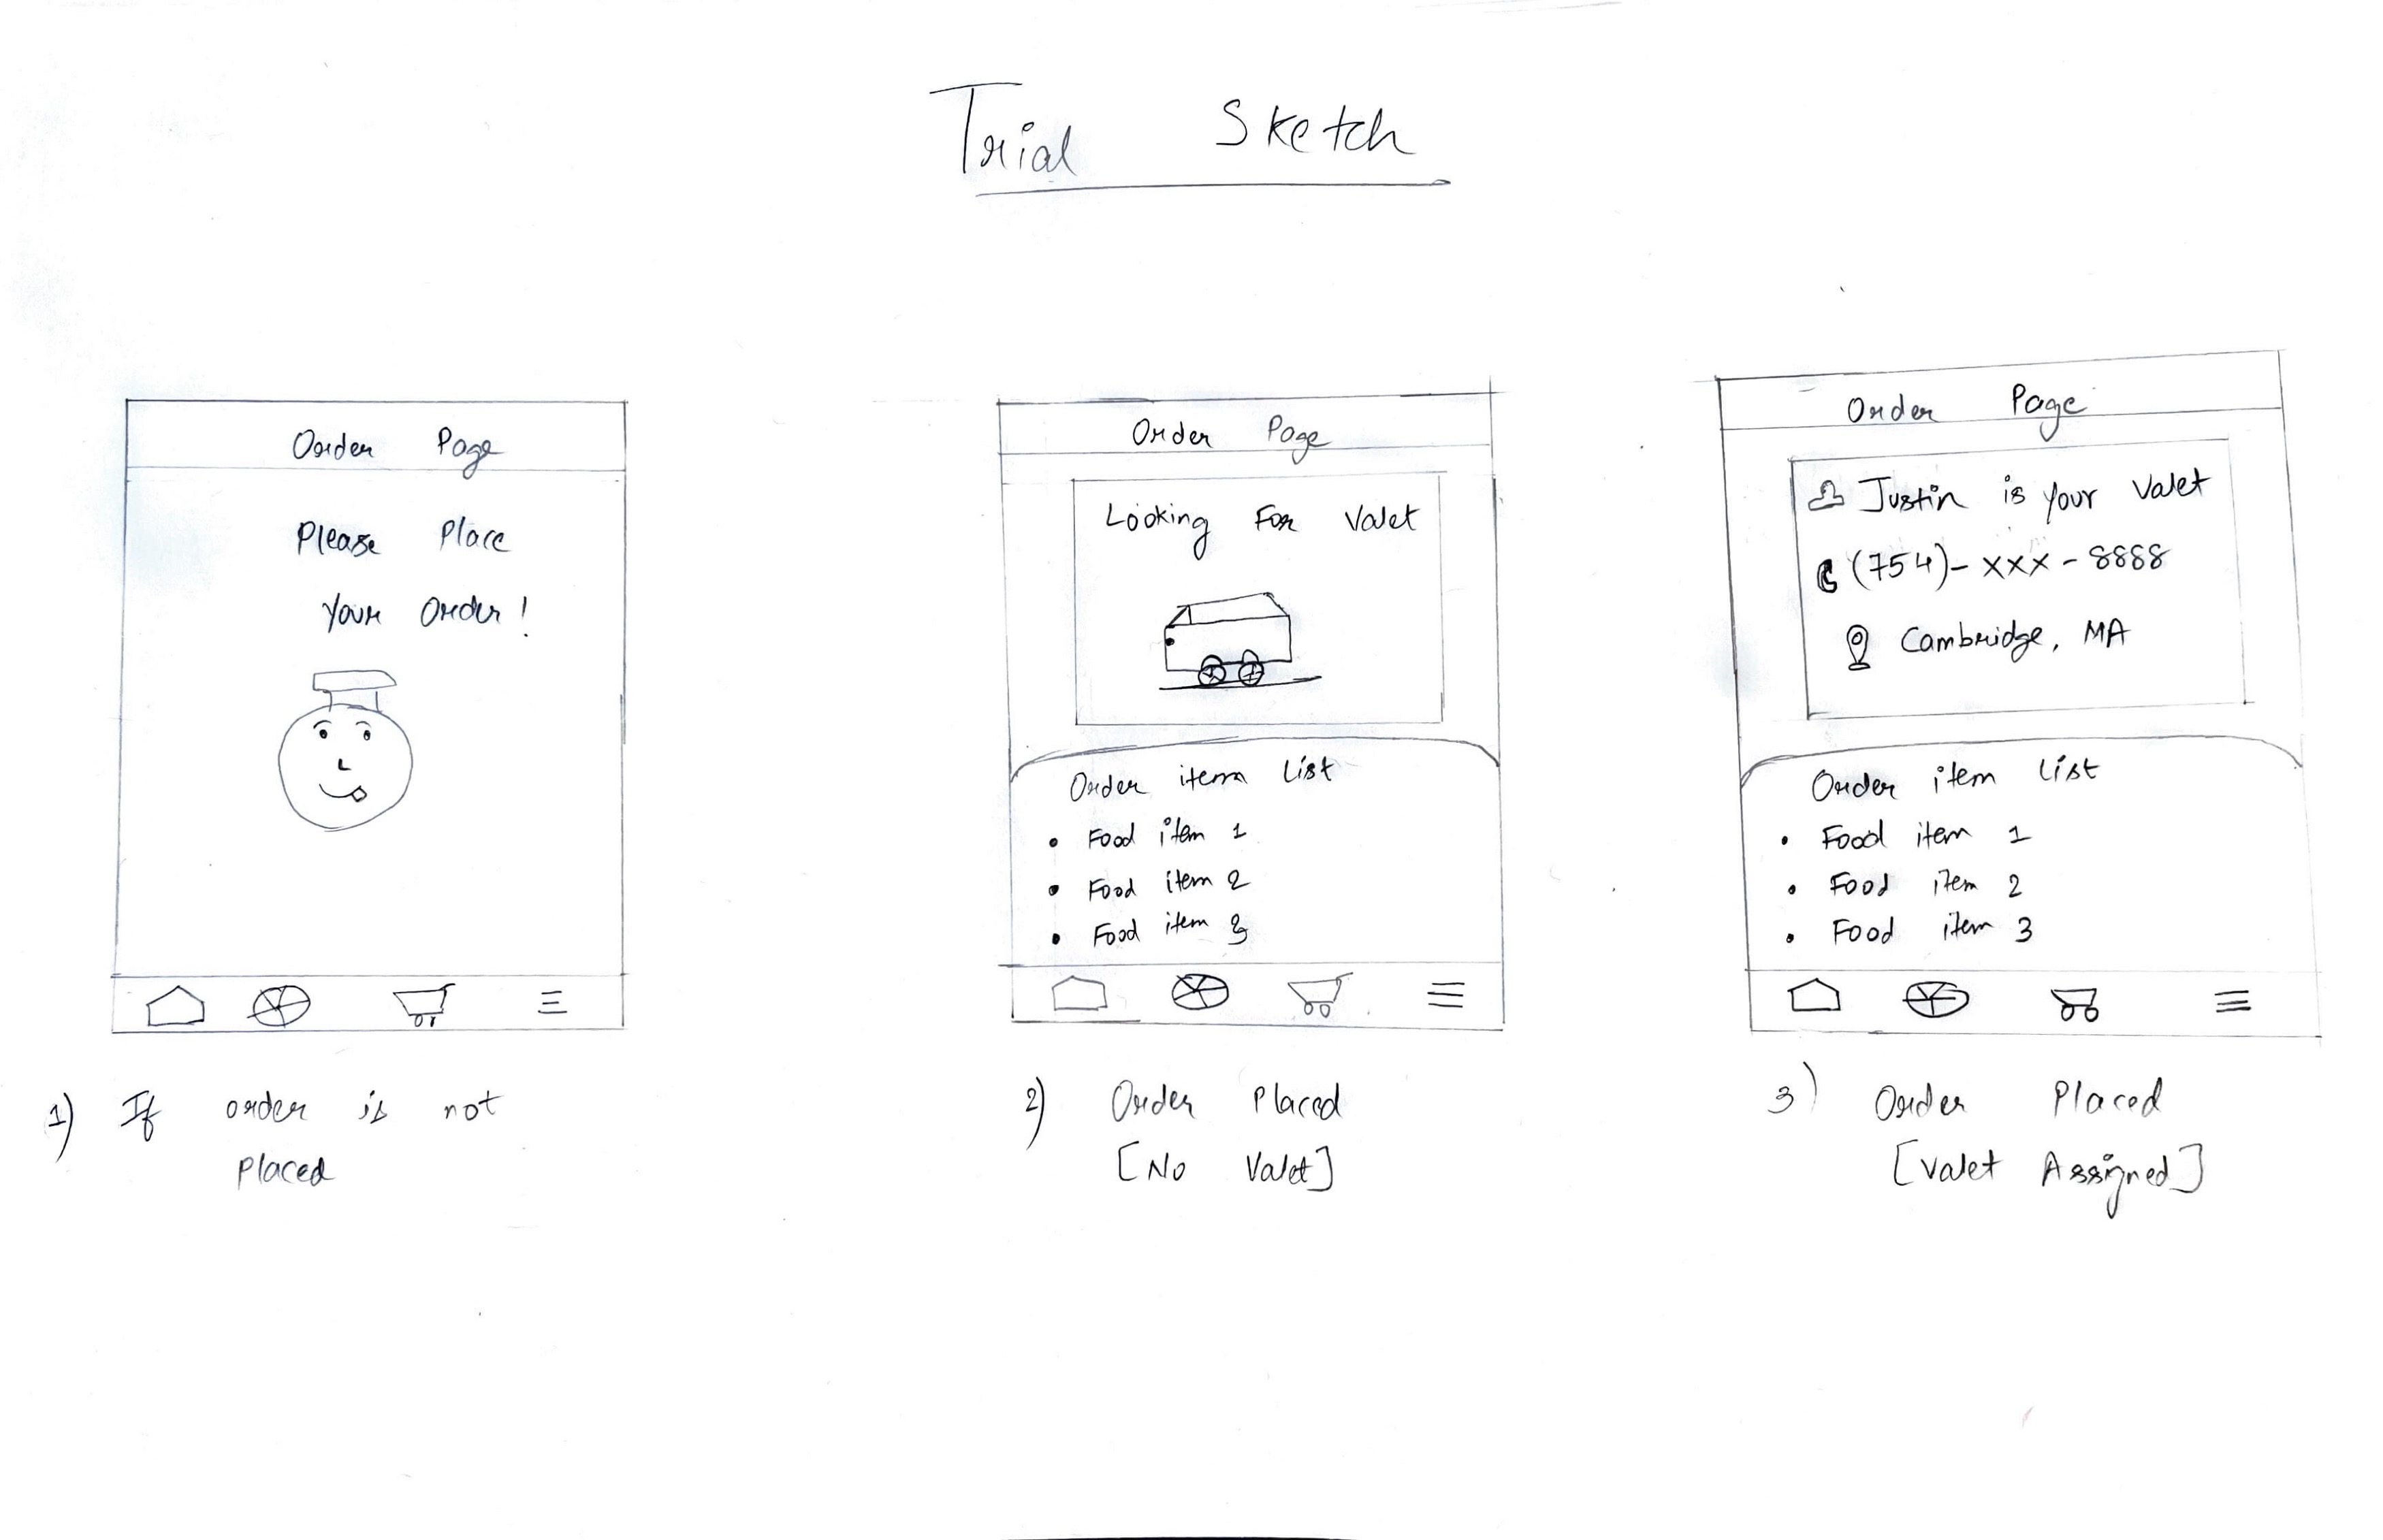 Trial Sketch
Order Page
Please Place
Your Order!
1) If order is not
Placed
Order Page
Looking For Valet
Order item List
• Food item 1
• Food item 2
• Food item 3
2) Order Placed
[No Valet]
Order Page
Justin is your Valet
(754)-xxx-8888
Cambridge, MA
Order item List
• Food item 1
• Food item 2
• Food item 3
3) Order Placed
[Valet Assigned]